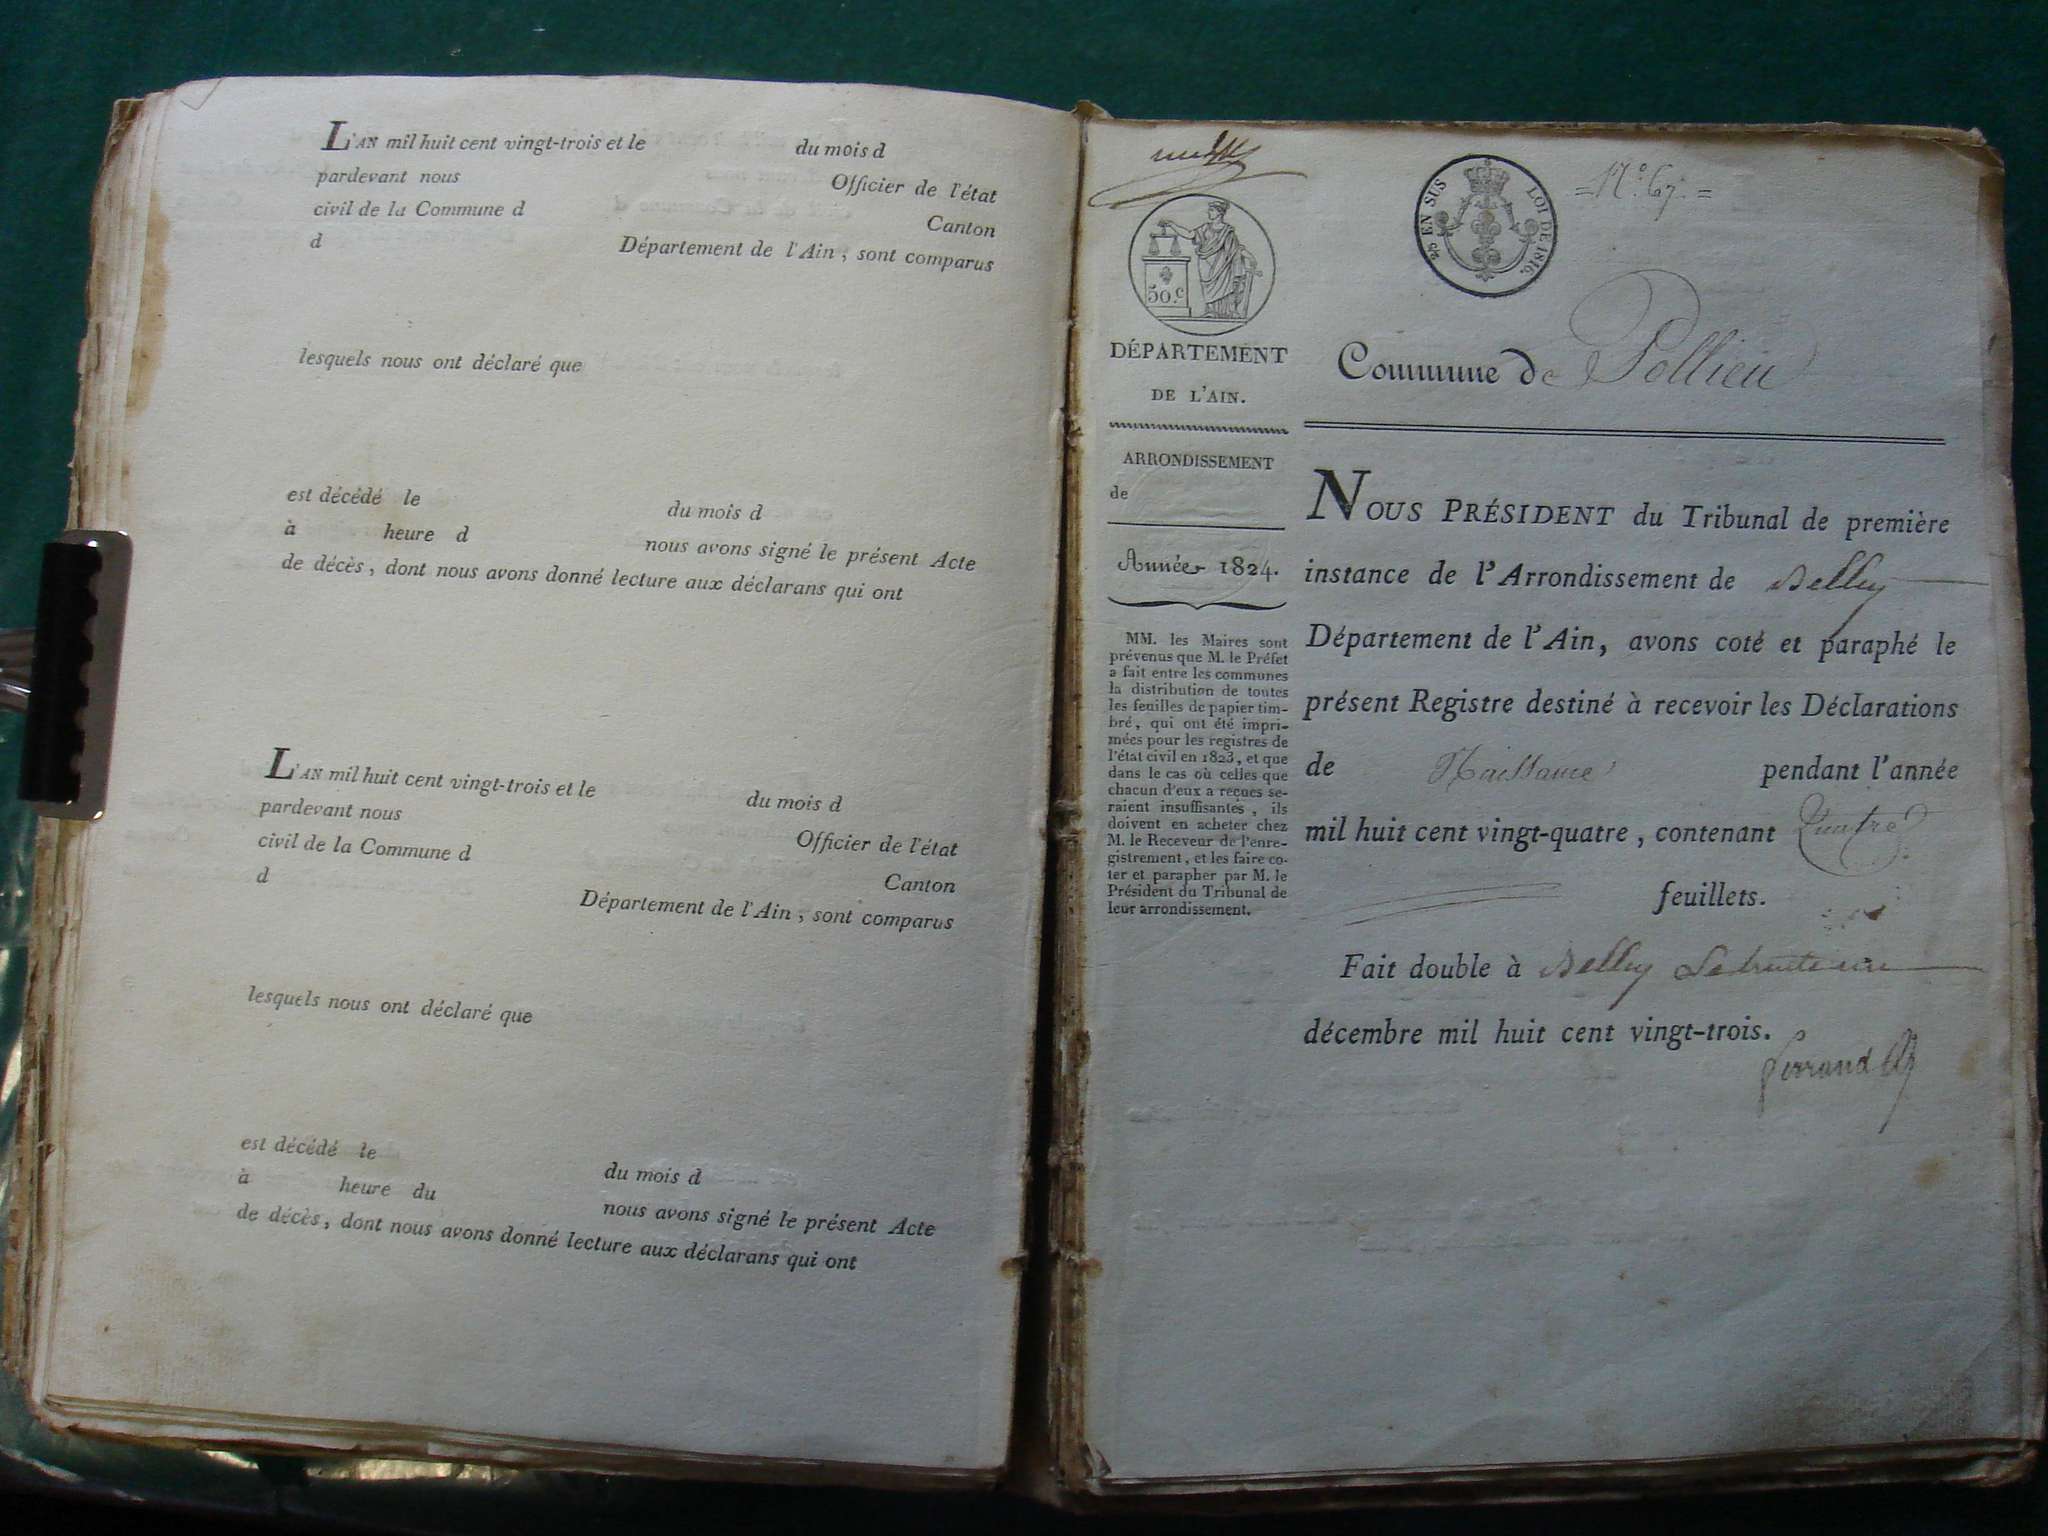 L'AN mil huit cent vingt-trois et le du mois d
pardevant nous Officier de l'état
civil de la Commune d Canton
d Département de l'Ain, sont comparus
lesquels nous ont déclaré que
est décédé le du mois d
à heure d nous avons signé le présent Acte
de décès, dont nous avons donné lecture aux déclarans qui ont
L'AN mil huit cent vingt-trois et le du mois d
pardevant nous Officier de l'état
civil de la Commune d Canton
d Département de l'Ain, sont comparus
lesquels nous ont déclaré que
est décédé le du mois d
à heure du nous avons signé le présent Acte
de décès, dont nous avons donné lecture aux déclarans qui ont
50.c
DÉPARTEMENT
DE L'AIN.
ARRONDISSEMENT
de
Année 1824.
MM. les Maires sont
prévenus que M. le Préfet
a fait entre les communes
la distribution de toutes
les feuilles de papier tim-
bré, qui ont été impri-
mées pour les registres de
l'état civil en 1823, et que
dans le cas où celles que
chacun d'eux a reçues se-
raient insuffisantes, ils
doivent en acheter chez
M. le Receveur de l'enre-
gistrement, et les faire co-
ter et parapher par M. le
Président du Tribunal de
leur arrondissement.
EN SUS LOI DE 1816.
=N.o 67.=
Commune de Pollieu
NOUS PRÉSIDENT du Tribunal de première
instance de l'Arrondissement de Belley
Département de l'Ain, avons coté et paraphé le
présent Registre destiné à recevoir les Déclarations
de Naissance pendant l'année
mil huit cent vingt-quatre, contenant Quatre
feuillets.
Fait double à Belley Le trente un
décembre mil huit cent vingt-trois.
Ferrand